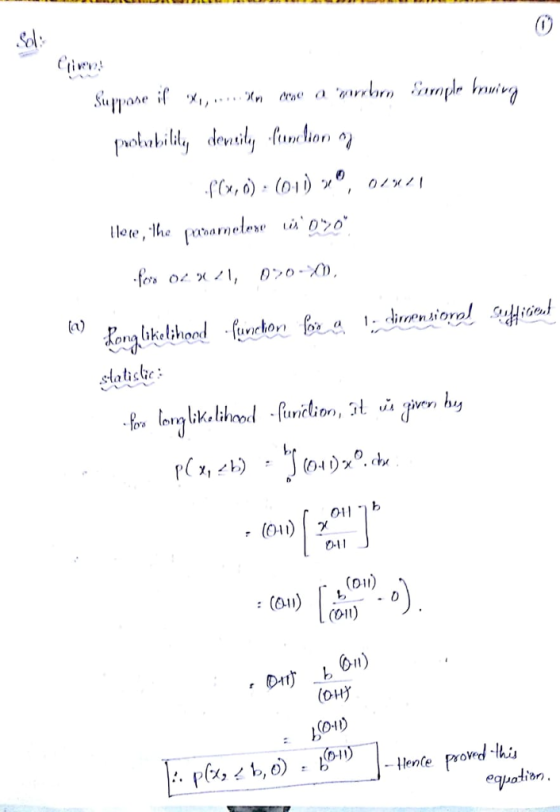 ①
Sol:
Given:
Suppose if x₁, ..... xn are a random Sample having
probability density function of
f(x, θ) = (θ+1) x^θ, 0<x<1
Here, the parametere is θ>0
for 0<x<1, θ>0 →①.
(a) Longlikelihood function for a 1-dimensional sufficient
statistic:
for longlikelihood function, it is given by
P(x₁ ≤ b) = ∫₀ᵇ (θ+1) x^θ. dx
= (θ+1) [x^(θ+1) / (θ+1)]^b
= (θ+1) [b^(θ+1) / (θ+1) - 0).
= (θ+1) b^(θ+1) / (θ+1)
= b^(θ+1)
∴ P(x₂ ≤ b, θ) = b^(θ+1) - Hence proved this
equation.